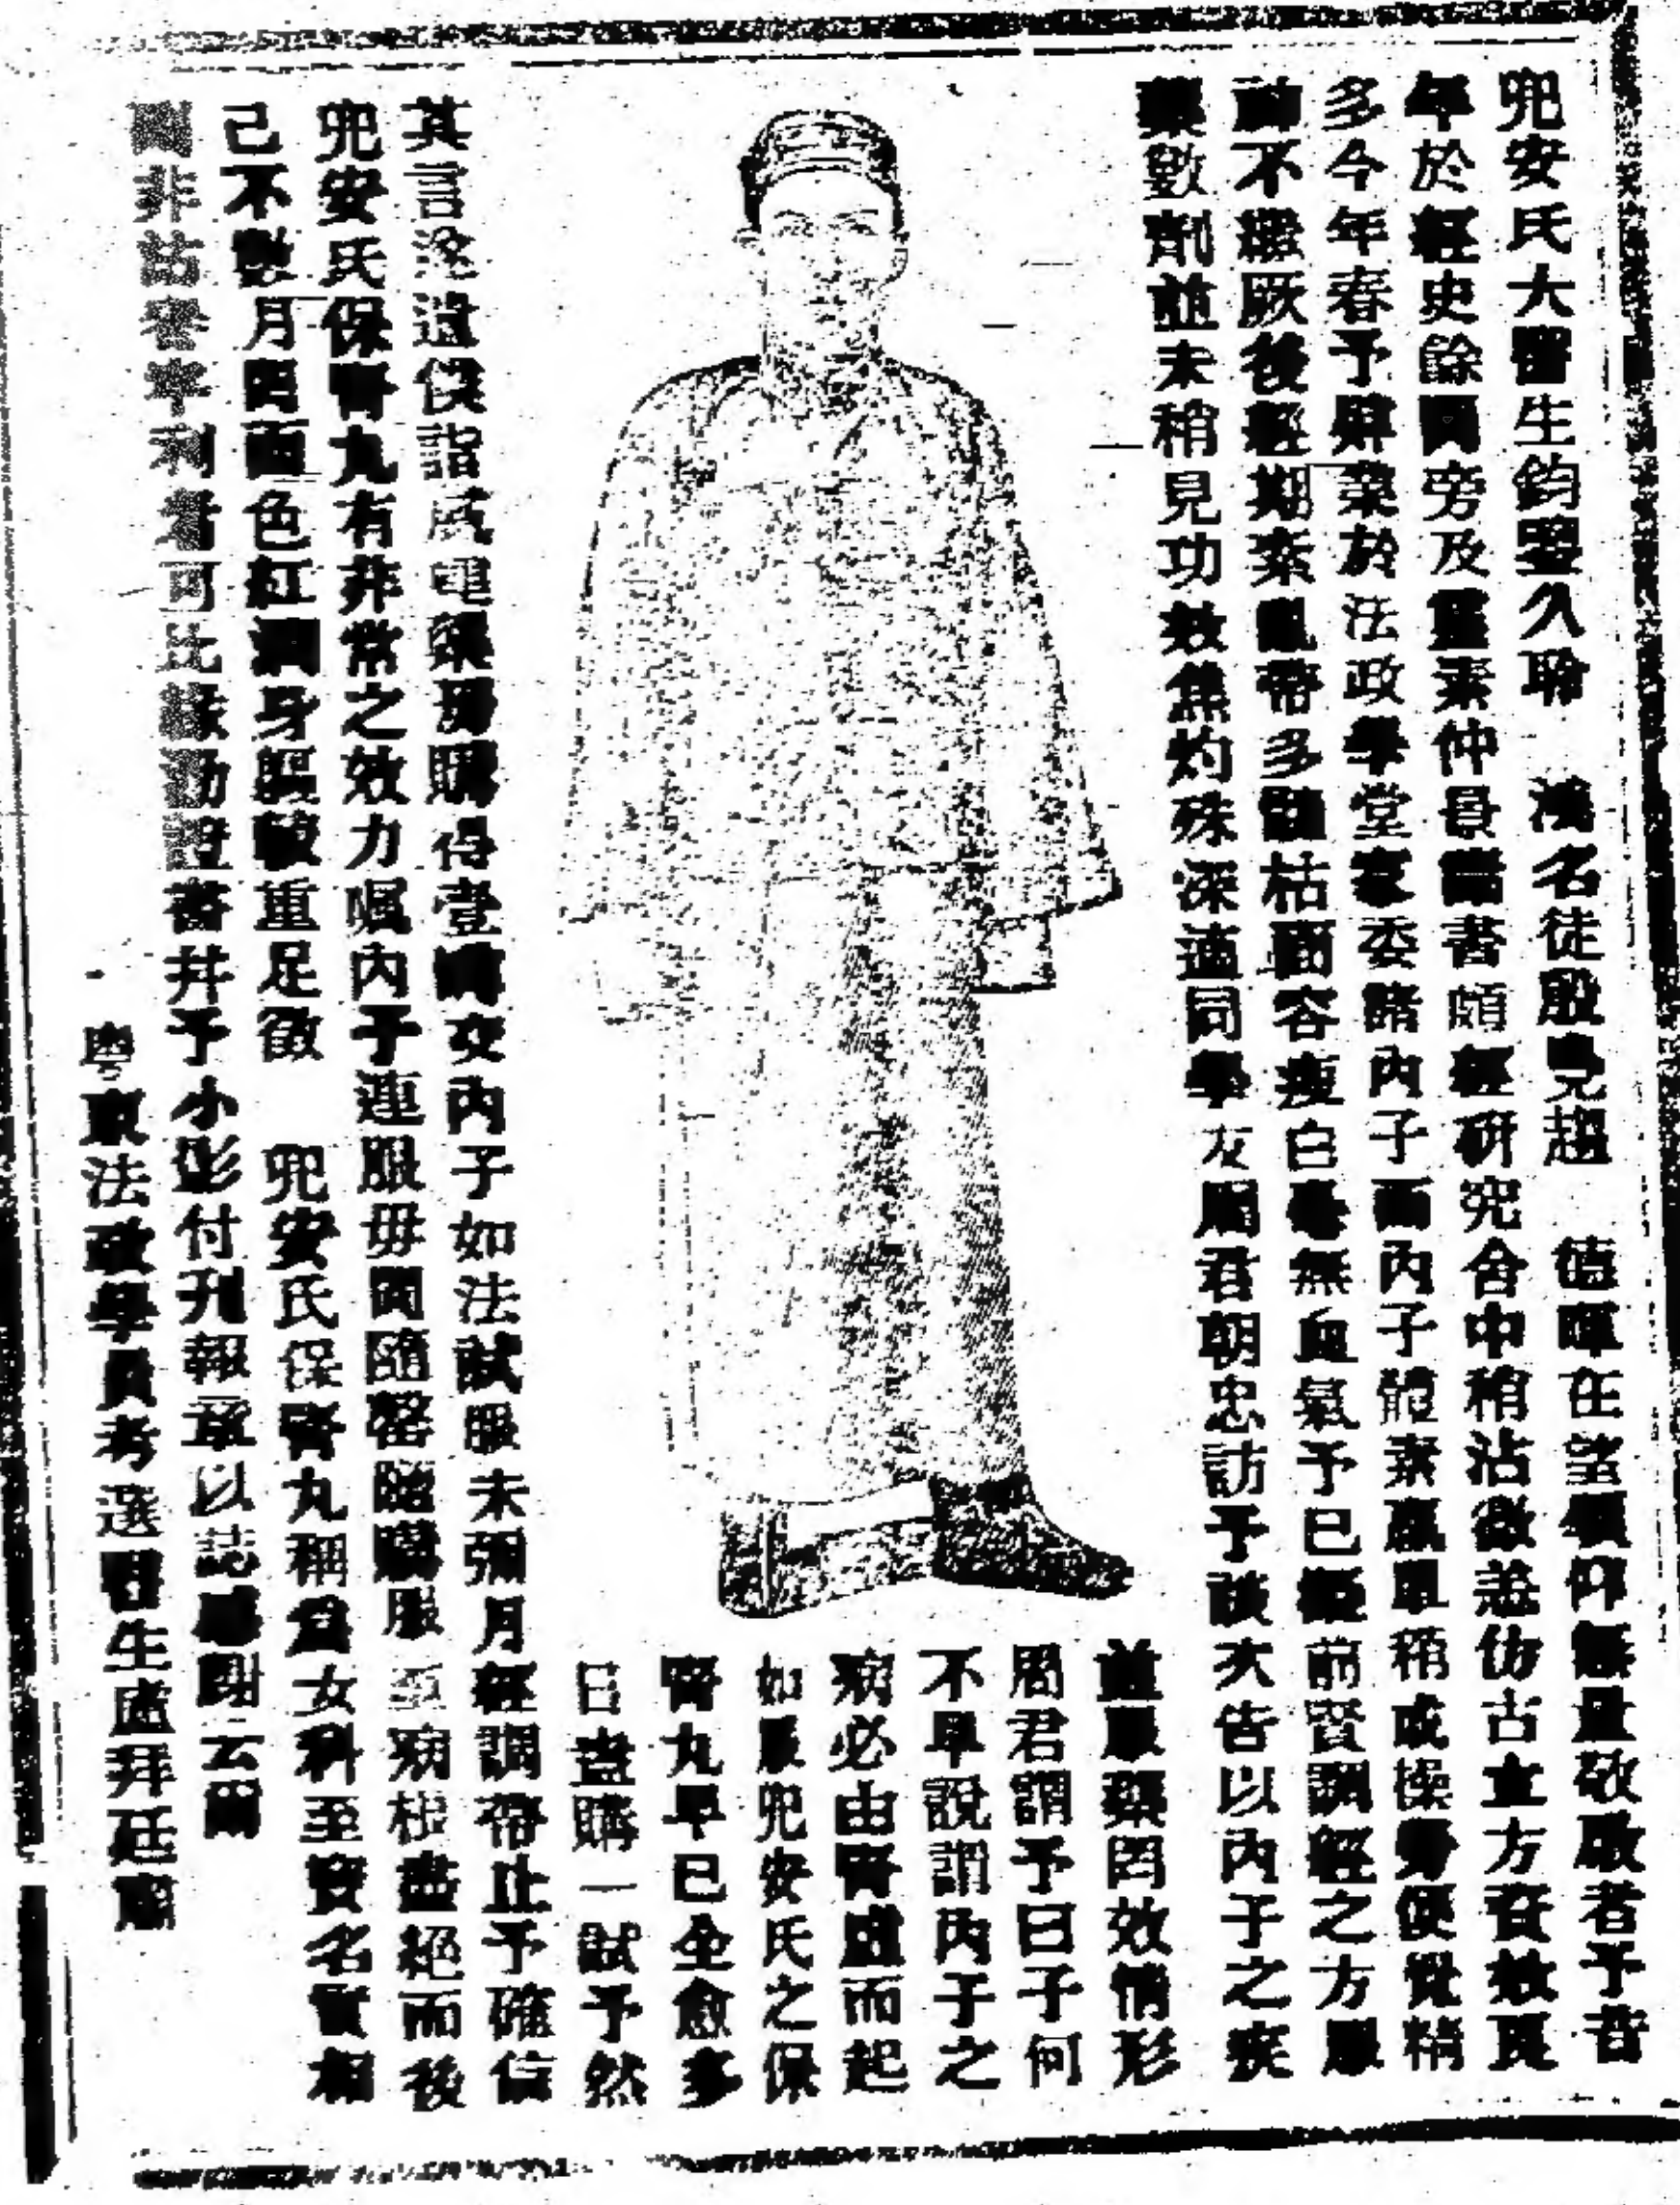 兜安氏大醫生鈞鑒久聆 鴻名徒殷兒趨 德暉在望欣仰無量敬啟者予昔
年於經史餘閒旁及靈素仲景諸書頗經研究合中稍沾微恙仿古立方奏效良
多今年春予肄業於法政學堂家委諸內子而內子體素羸單稍或操勞便覺精
神不繼厥後經期紊亂帶多顴枯面容瘦白毫無血氣予已擬前賢調經之方服
藥數劑並未稍見功效焦灼殊深適同學友周君朝忠訪予談次告以內子之疾
並服藥罔效情形
周君謂予曰子何
不早說謂內子之
病必由腎虛而起
如服兜安氏之保
腎丸早已全愈多
日盍購一試予然
其言遂遣僕詣威建藥房購得壹罇交內子如法試服未彌月經調帶止予確信
兜安氏保腎丸有非常之效力囑內子連服毋間隨罄隨購服至病根盡絕而後
已不數月間面色紅潤身軀敏重足徵 兜安氏保腎丸稱為女科至寶名實相
爾非沽害牟利者可比緣勛證書幷予小影付刊報章以誌感謝云爾
粵東法政學員考選醫生盧拜廷肅